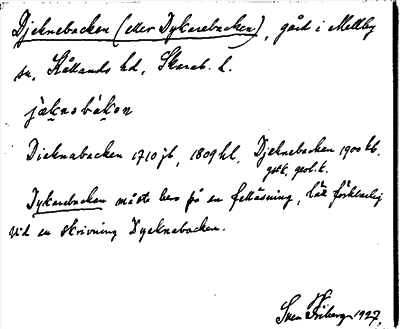 Djeknebacken (eller Dykarebacken), gård i Mellby
sn, Kållands hd, Skarab. l.
jäknabákan
Dieknabacken 1710 jb, 1809 hl, Djeknebacken 1900 kb.
gstk, geol. k.
Dykarebacken måste bero på en felläsning, lätt förklarlig
vid en skrivning Dyeknabacken.
Sven Friberg 1927.